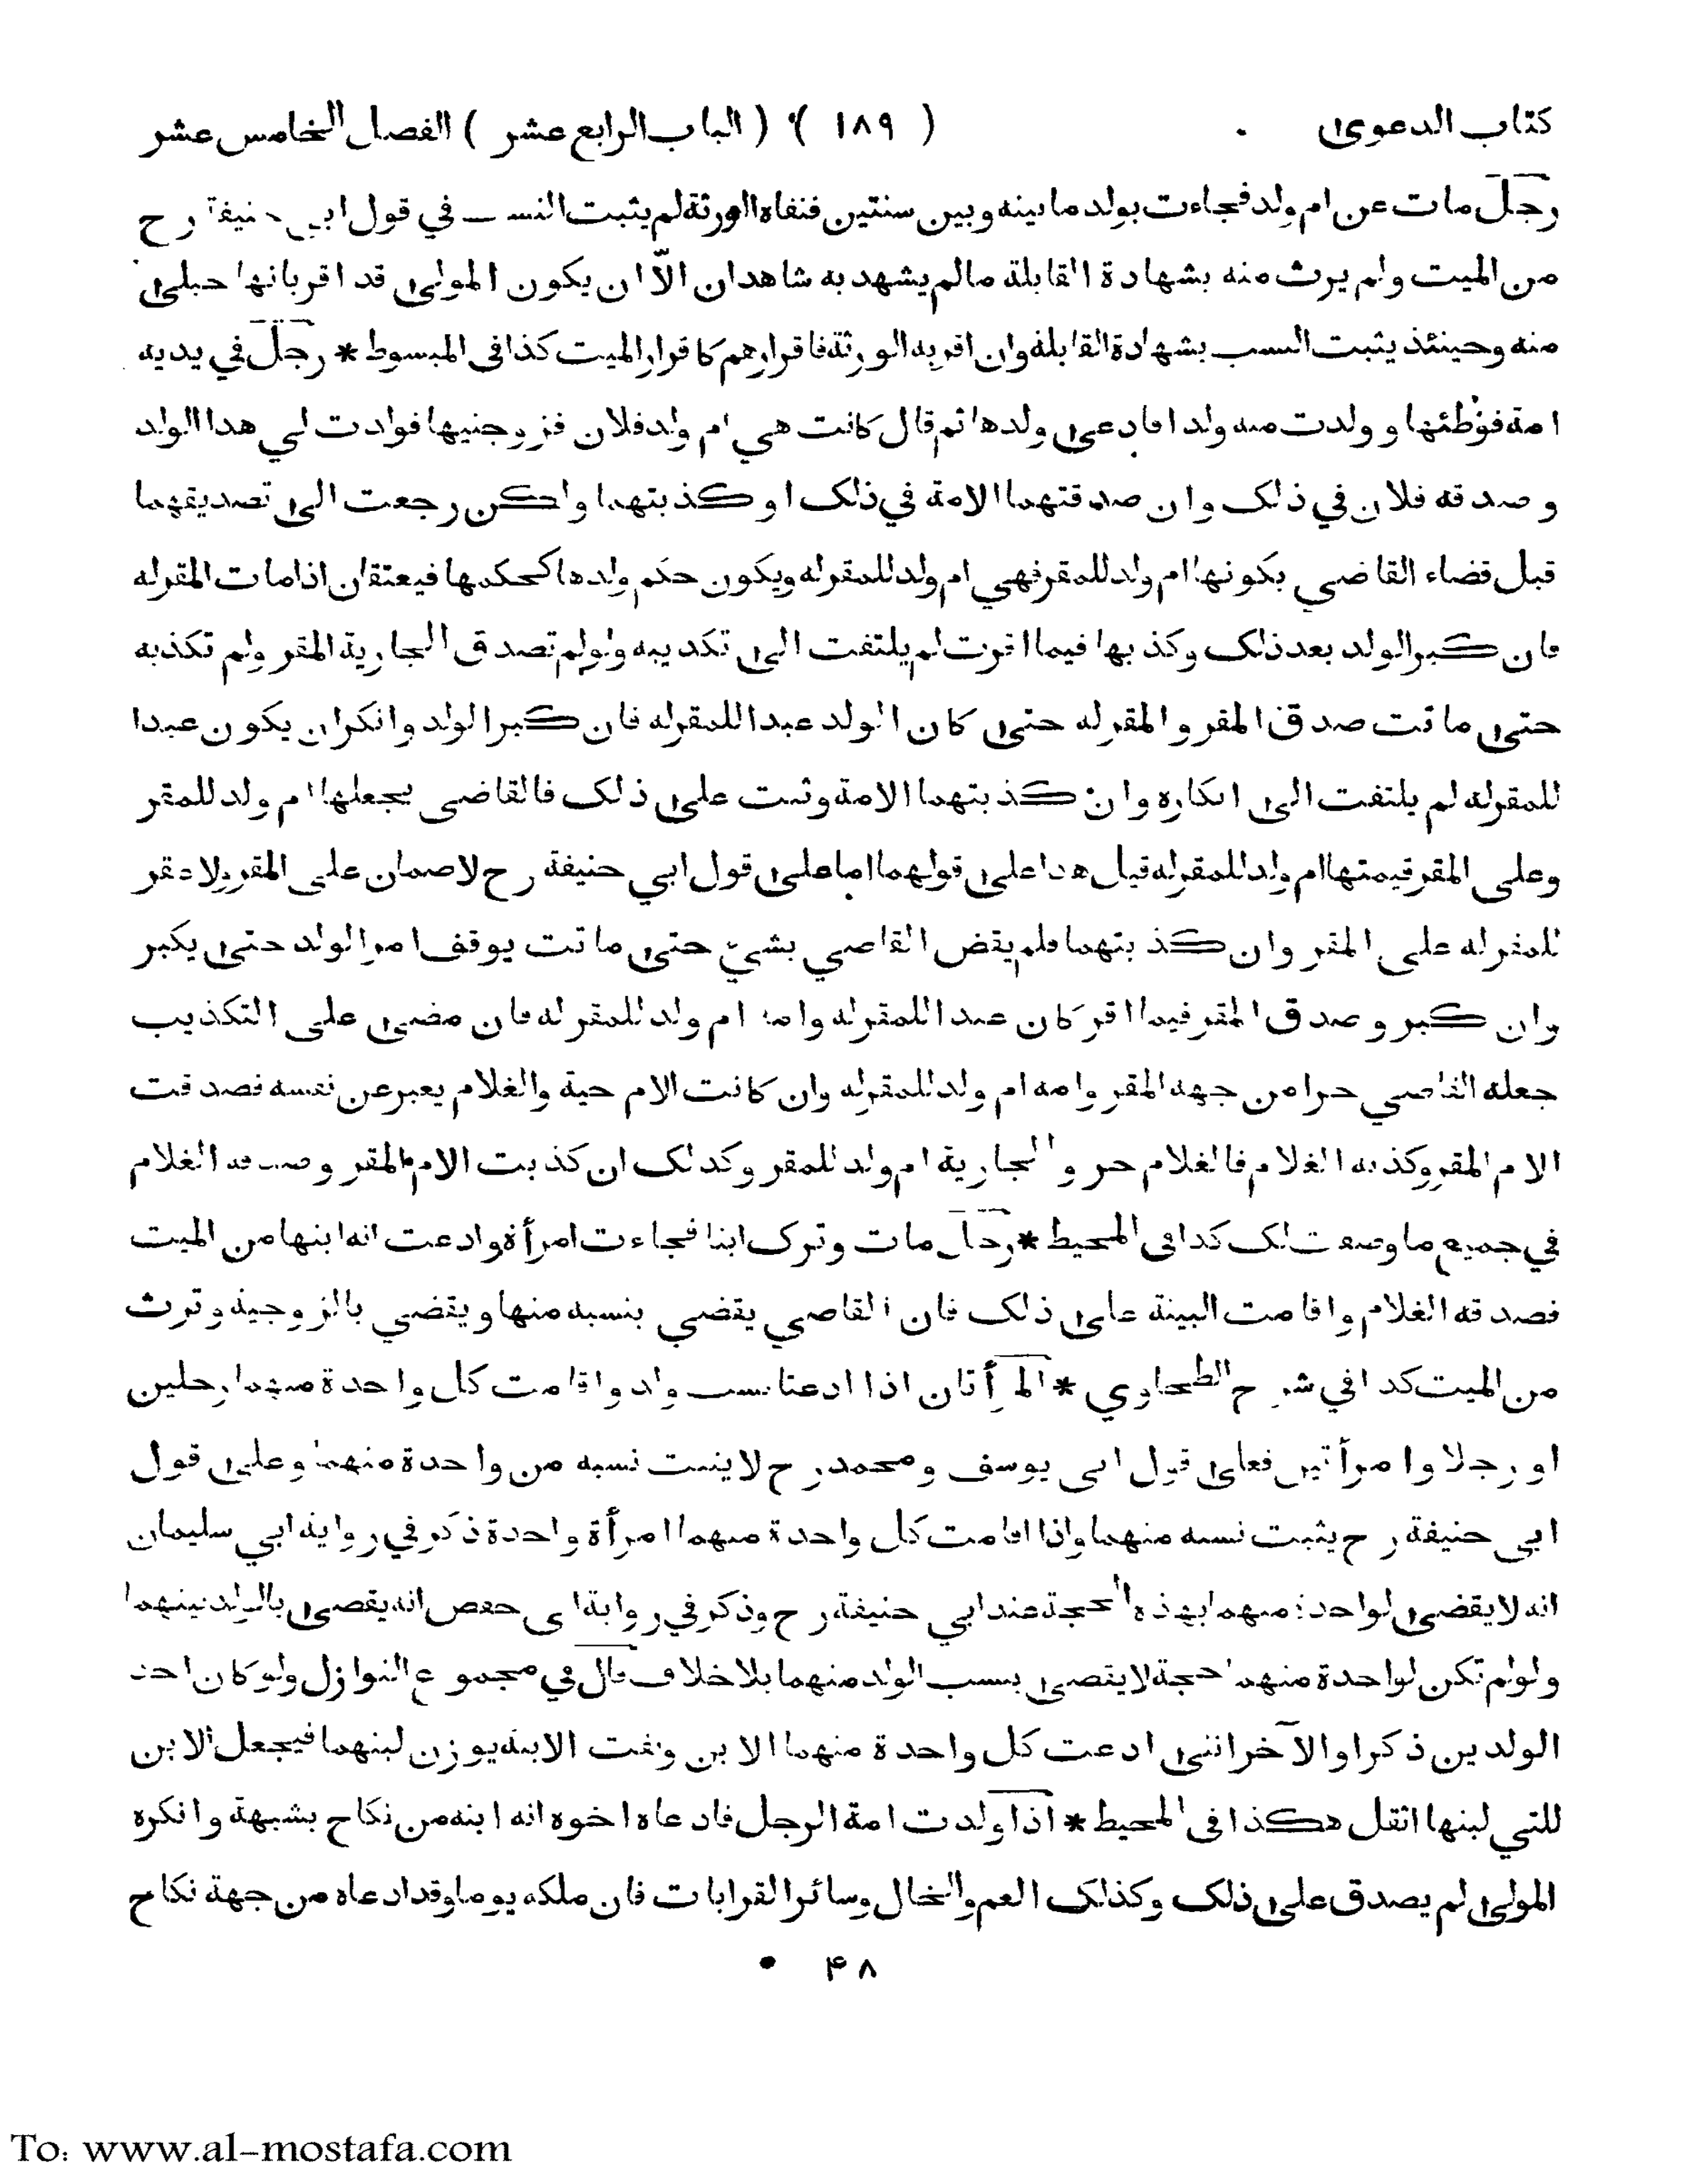 كتاب الدعوى ( ١٨٩ ) ( الباب الرابع عشر ) الفصل الخامس عشر
رجل مات عن ام ولد فجاءت بولد ما بينه وبين سنتين فنفاه الورثة لم يثبت النسب في قول ابي حنيفة رح
من الميت ولم يرث منه بشهادة القابلة مالم يشهد به شاهدان الّا ان يكون المولى قد اقر بانها حبلى
منه وحينئذ يثبت النسب بشهادة القابلة وان اقر به الورثة فاقرارهم كاقرار الميت كذا فى المبسوط * رجل في يديه
امة فوطئها وولدت منه ولدا فادعى ولدها ثم قال كانت هي ام ولد فلان فزوجنيها فولدت لي هذا الولد
وصدقه فلان في ذلك وان صدقتهما الامة في ذلك او كذبتهما ولكن رجعت الى تصديقهما
قبل قضاء القاضي بكونها ام ولد للمقر فهي ام ولد للمقر له ويكون حكم ولدها كحكمها فيعتقان اذا مات المقر له
فان كبر الولد بعد ذلك وكذبها فيما اقرت لم يلتفت الى تكذيبه ولو لم تصدق الجارية المقر ولم تكذبه
حتى ماتت صدق المقر والمقر له حتى كان الولد عبدا للمقر له فان كبر الولد وانكر ان يكون عبدا
للمقر له لم يلتفت الى انكاره وان كذبتهما الامة وثبتت على ذلك فالقاضى يجعلها ام ولد للمقر
وعلى المقر قيمتها ام ولد للمقر له قيل هذا على قولهما اما على قول ابي حنيفة رح لا ضمان على المقر ولا عقر
للمقر له على المقر وان كذبتهما فلم يقض القاضي بشيء حتى ماتت يوقف امر الولد حتى يكبر
وان كبر وصدق المقر فيما اقر كان عبدا للمقر له وامه ام ولد للمقر له فان مضى على التكذيب
جعله القاضي حرا من جهة المقر وامه ام ولد للمقر له وان كانت الام حية والغلام يعبر عن نفسه فصدقت
الام المقر وكذبه الغلام فالغلام حر والجارية ام ولد للمقر وكذلك ان كذبت الام المقر وصدقه الغلام
في جميع ما وصفت لك كذا فى المحيط * رجل مات وترك ابنا فجاءت امرأة وادعت انه ابنها من الميت
فصدقه الغلام واقامت البينة على ذلك فان القاضي يقضي بنسبه منها ويقضي بالزوجية وترث
من الميت كذا في شرح الطحاوي * المرأتان اذا ادعتا نسب ولد واقامت كل واحدة منهما رجلين
او رجلا وامرأتين فعلى قول ابى يوسف ومحمد رح لا يثبت نسبه من واحدة منهما وعلى قول
ابي حنيفة رح يثبت نسبه منهما واذا اقامت كل واحدة منهما امرأة واحدة ذكر في رواية ابي سليمان
انه لا يقضى لواحدة منهما بهذه الحجة عند ابي حنيفة رح وذكر في رواية ابى حفص انه يقضى بالولد بينهما
ولو لم تكن لواحدة منهما حجة لا يقضى بنسب الولد منهما بلا خلاف قال في مجموع النوازل ولو كان احد
الولدين ذكرا والآخر انثى ادعت كل واحدة منهما الابن ونفت الابنة يوزن لبنهما فيجعل الابن
للتي لبنها اثقل هكذا فى المحيط * اذا ولدت امة الرجل فادعاه اخوه انه ابنه من نكاح بشبهة وانكره
المولى لم يصدق على ذلك وكذلك العم والخال وسائر القرابات فان ملكه يوما وقد ادعاه من جهة نكاح
۴۸
To: www.al-mostafa.com